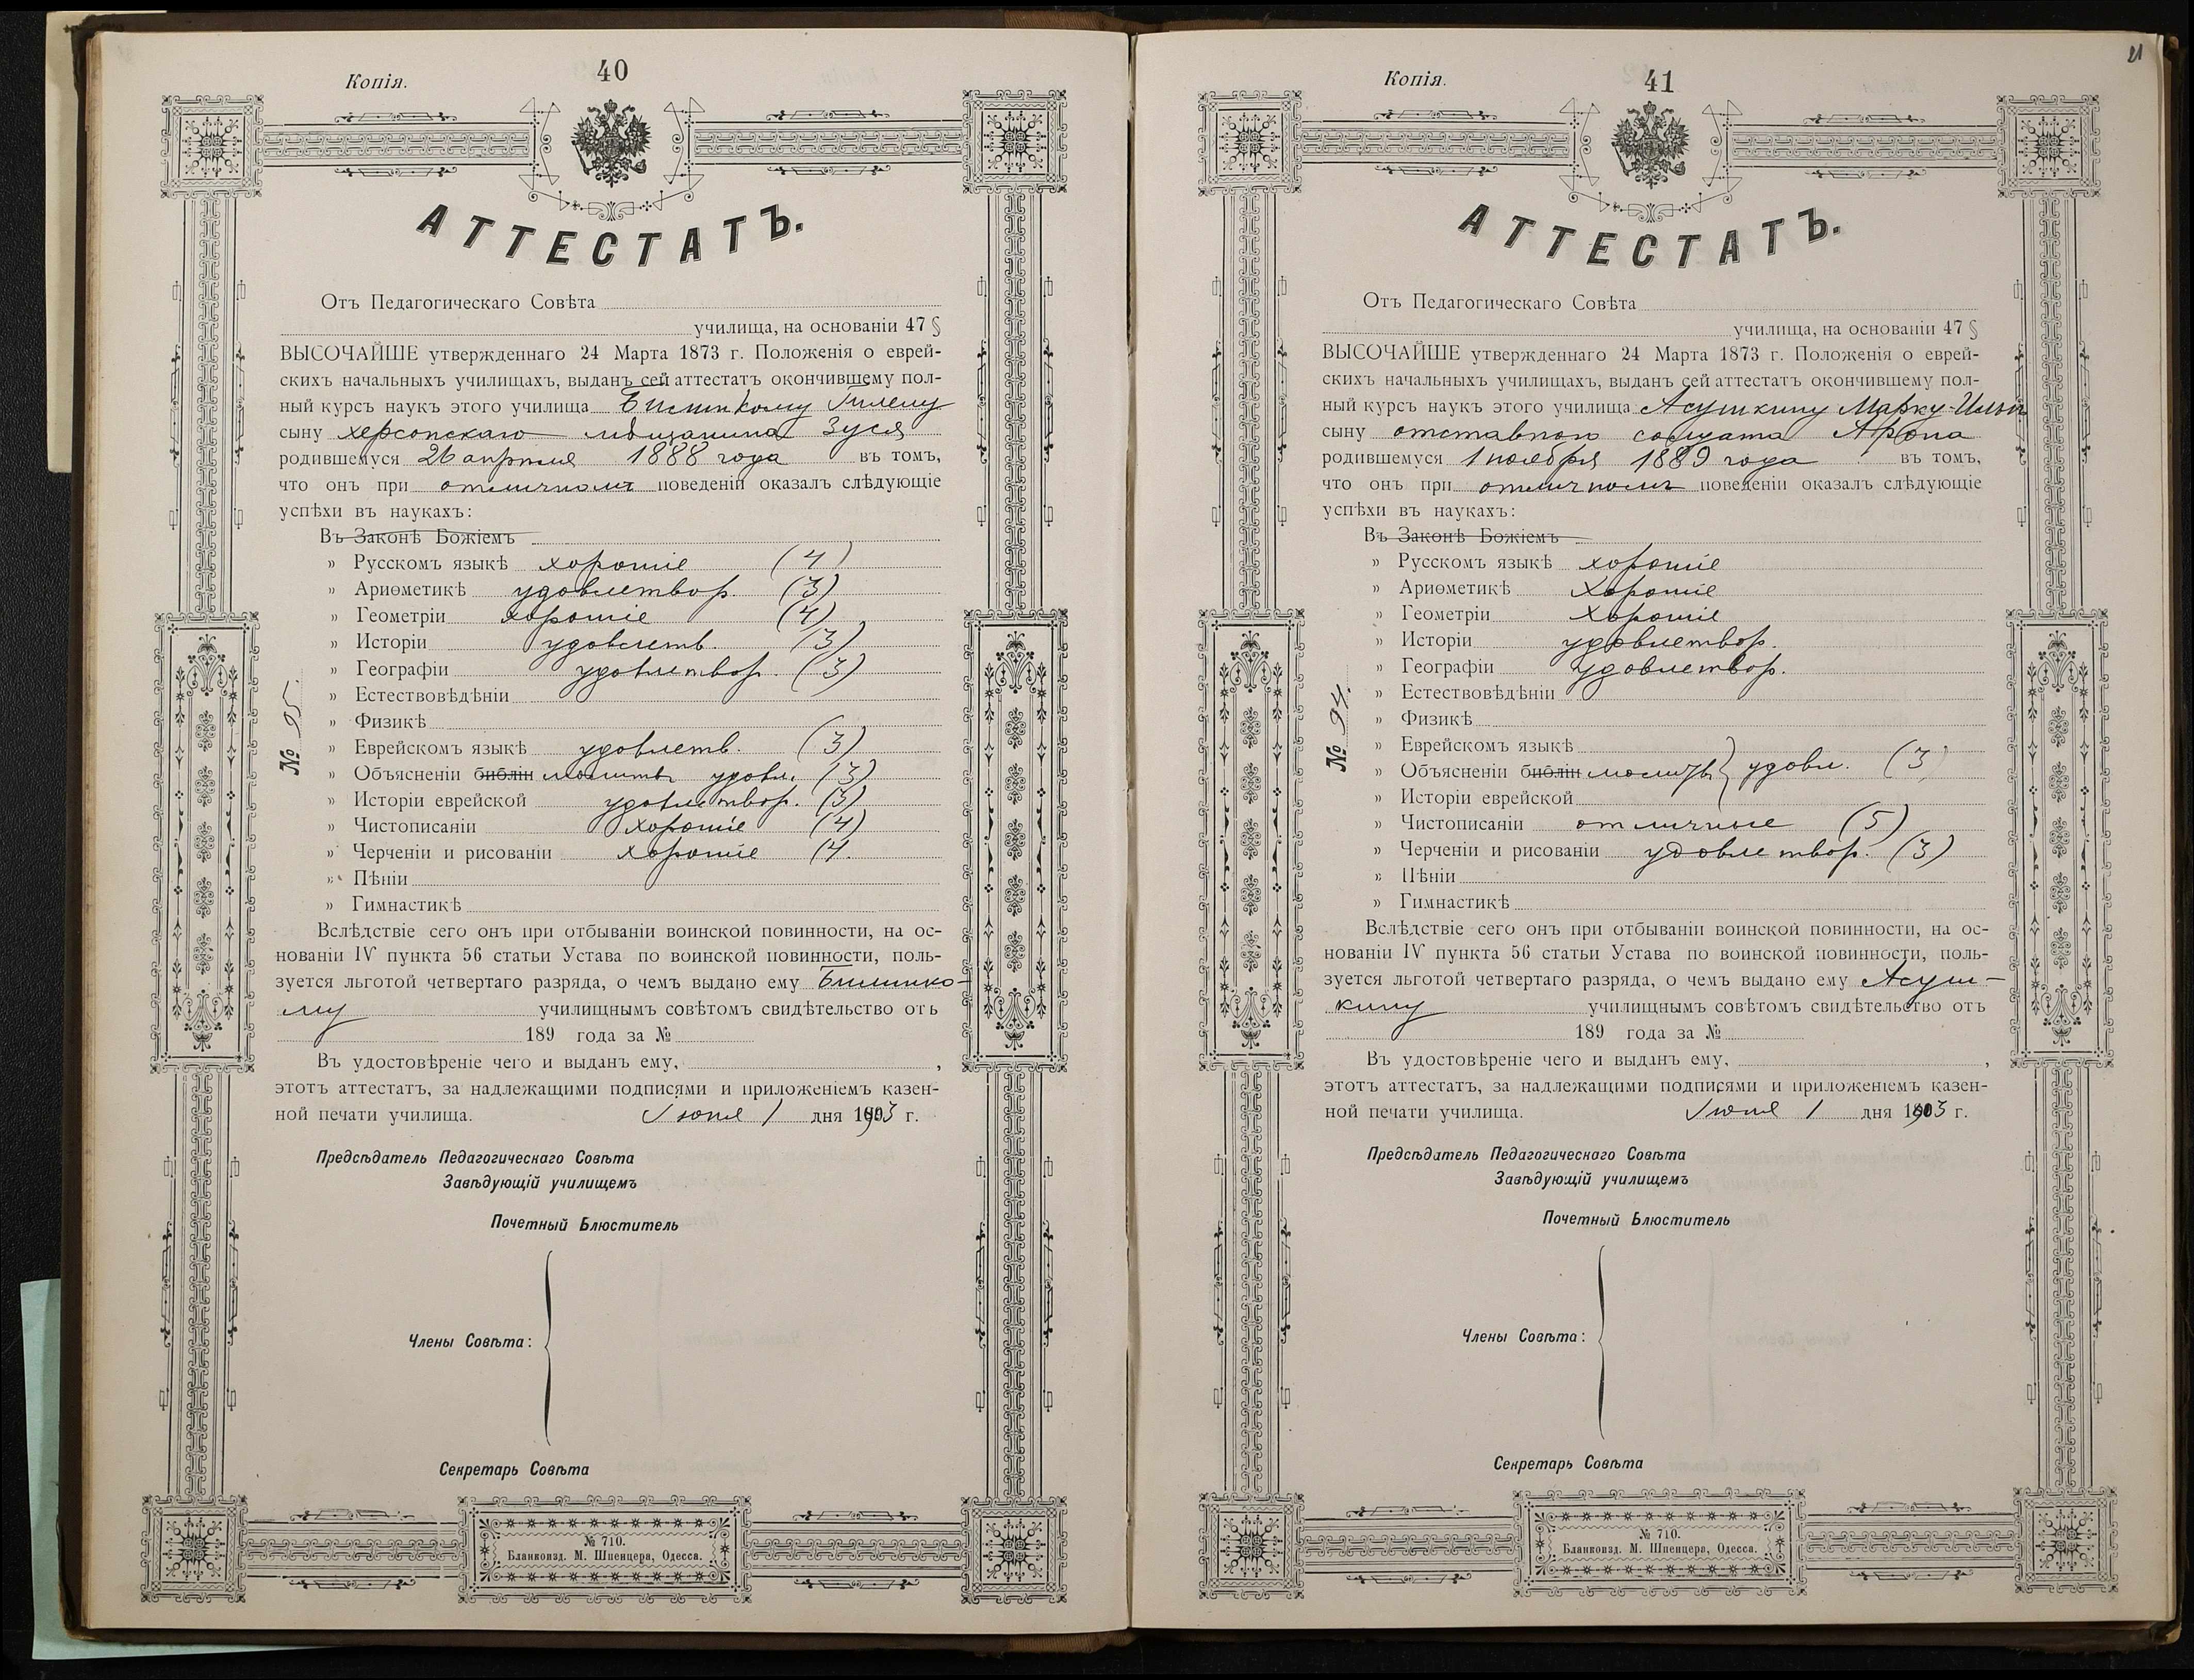 Копія.
40
АТТЕСТАТЪ.
Отъ Педагогическаго Совѣта
училища, на основаніи 47 §
ВЫСОЧАЙШЕ утвержденнаго 24 Марта 1873 г. Положенія о еврей-
скихъ начальныхъ училищахъ, выданъ сей аттестатъ окончившему пол-
ный курсъ наукъ этого училища Гилелу
сыну херсонскаго мѣщанина Зуся
родившемуся 26 апрѣля 1888 года въ томъ,
что онъ при отличномъ поведеніи оказалъ слѣдующіе
успѣхи въ наукахъ:
Въ Законѣ Божіемъ
» Русскомъ языкѣ хорошіе (4)
» Ариѳметикѣ удовлетвор. (3)
» Геометріи хорошіе (4)
» Исторіи удовлетв. (3)
» Географіи удовлетвор. (3)
» Естествовѣдѣніи
» Физикѣ
» Еврейскомъ языкѣ удовлетв. (3)
» Объясненіи библіи молитвъ удовл. (3)
» Исторіи еврейской удовлетвор. (3)
» Чистописаніи хорошіе (4)
» Черченіи и рисованіи хорошіе (4.
» Пѣніи
» Гимнастикѣ
№ 95.
Вслѣдствіе сего онъ при отбываніи воинской повинности, на ос-
нованіи IV пункта 56 статьи Устава по воинской повинности, поль-
зуется льготой четвертаго разряда, о чемъ выдано ему
му училищнымъ совѣтомъ свидѣтельство отъ
189 года за №
Въ удостовѣреніе чего и выданъ ему, ,
этотъ аттестатъ, за надлежащими подписями и приложеніемъ казен-
ной печати училища. Іюня 1 дня 1903 г.
Предсѣдатель Педагогическаго Совѣта
Завѣдующій училищемъ
Почетный Блюститель
Члены Совѣта:
Секретарь Совѣта
№ 710.
Бланкоизд. М. Шпенцера, Одесса.
21
Копія.
41
АТТЕСТАТЪ.
Отъ Педагогическаго Совѣта
училища, на основаніи 47 §
ВЫСОЧАЙШЕ утвержденнаго 24 Марта 1873 г. Положенія о еврей-
скихъ начальныхъ училищахъ, выданъ сей аттестатъ окончившему пол-
ный курсъ наукъ этого училища Асушкину Марку-
сыну отставного солдата Арона
родившемуся 1 ноября 1889 года въ томъ,
что онъ при отличномъ поведеніи оказалъ слѣдующіе
успѣхи въ наукахъ:
Въ Законѣ Божіемъ
» Русскомъ языкѣ хорошіе
» Ариѳметикѣ Хорошіе
» Геометріи Хорошіе
» Исторіи удовлетвор.
» Географіи удовлетвор.
» Естествовѣдѣніи
» Физикѣ
» Еврейскомъ языкѣ
» Объясненіи библіи молитвъ } удовл. (3)
» Исторіи еврейской
» Чистописаніи отличные (5)
» Черченіи и рисованіи удовлетвор. (3)
» Пѣніи
» Гимнастикѣ
№ 94.
Вслѣдствіе сего онъ при отбываніи воинской повинности, на ос-
нованіи IV пункта 56 статьи Устава по воинской повинности, поль-
зуется льготой четвертаго разряда, о чемъ выдано ему Асуш-
кину училищнымъ совѣтомъ свидѣтельство отъ
189 года за №
Въ удостовѣреніе чего и выданъ ему, ,
этотъ аттестатъ, за надлежащими подписями и приложеніемъ казен-
ной печати училища. Іюня 1 дня 1903 г.
Предсѣдатель Педагогическаго Совѣта
Завѣдующій училищемъ
Почетный Блюститель
Члены Совѣта:
Секретарь Совѣта
№ 710.
Бланкоизд. М. Шпенцера, Одесса.